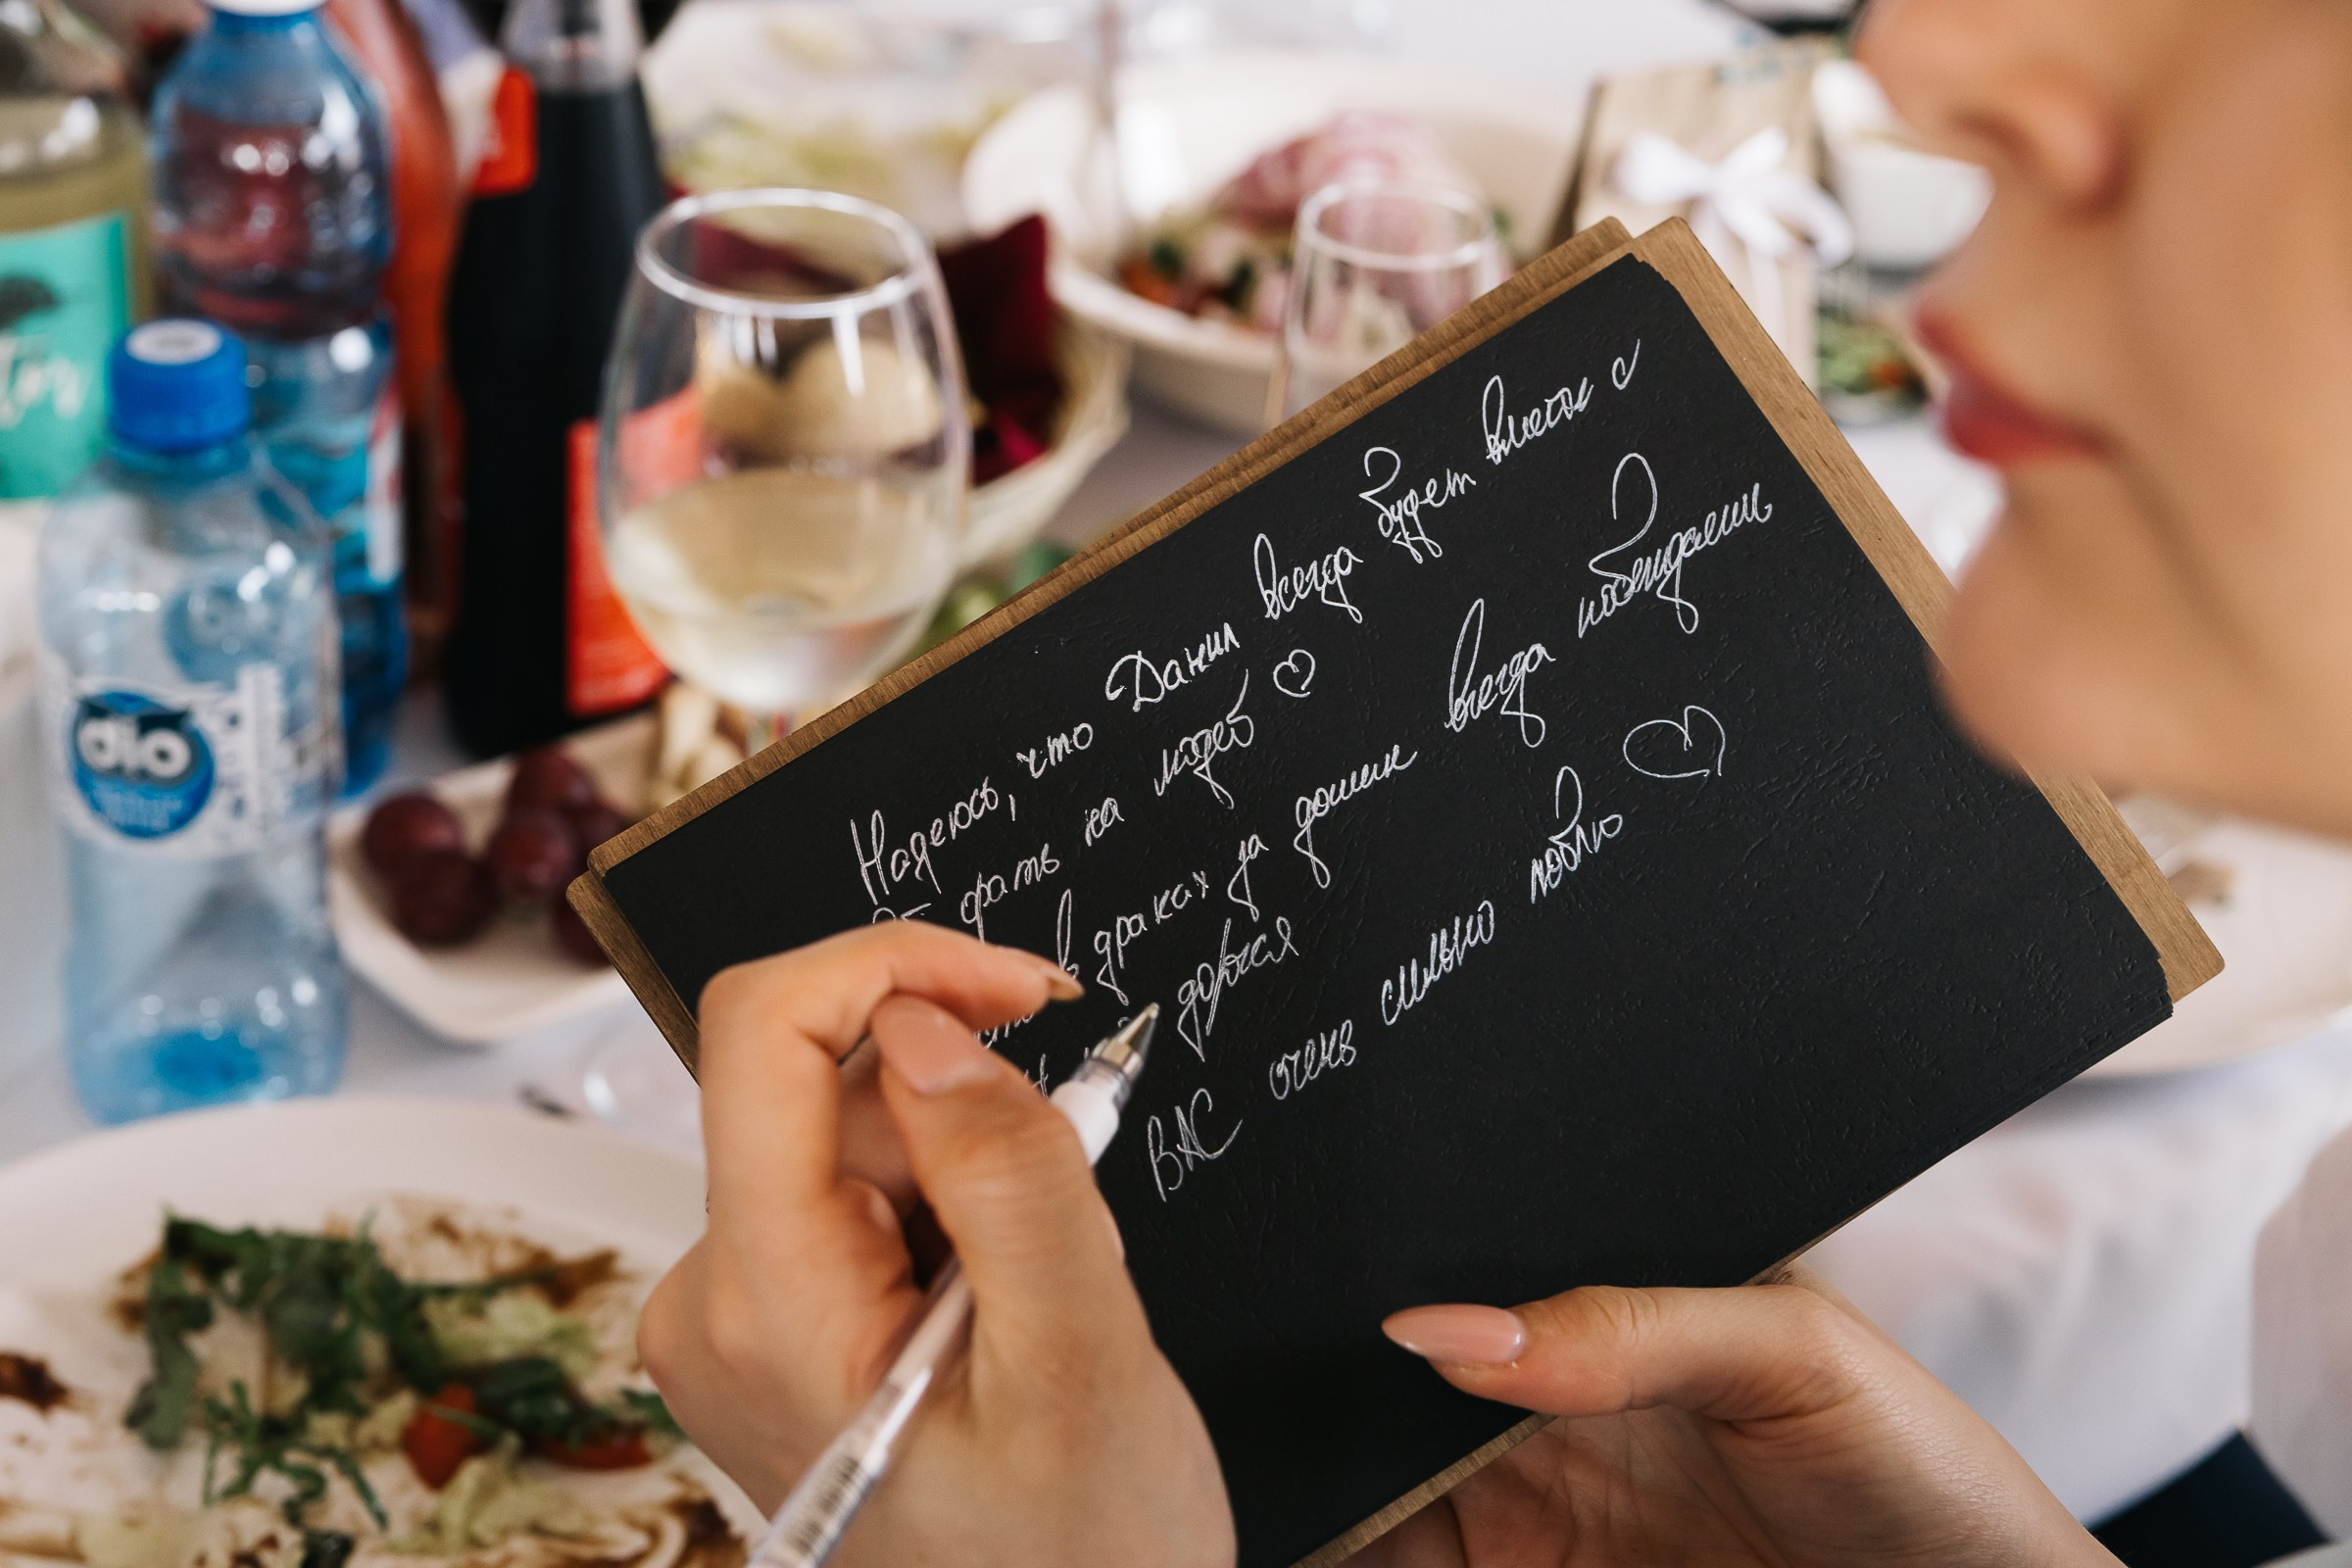 Надеюсь, что Данил всегда будет вместе с
орать на людей ♡
в драках за домик всегда побеждаешь
дорогая
ВАС очень сильно люблю ♡
dio